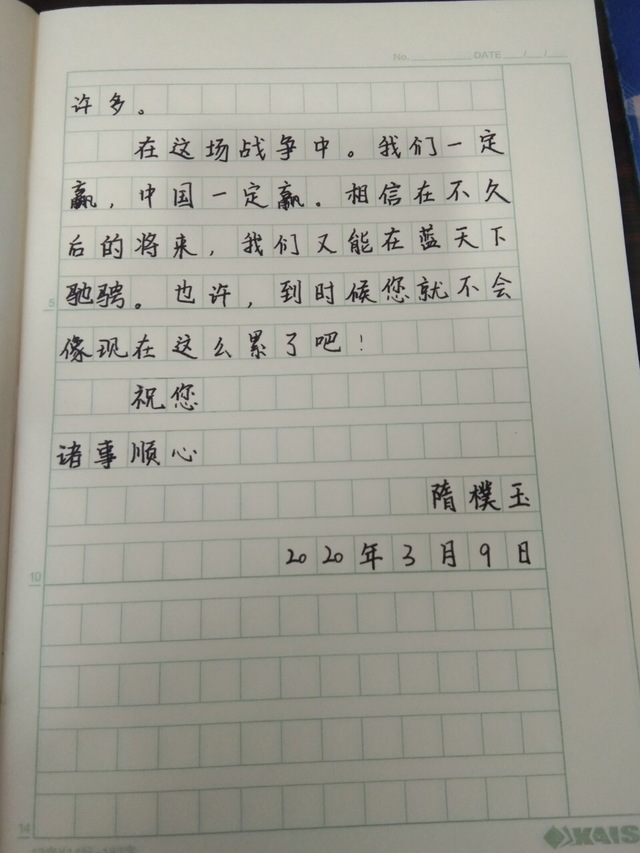 No. DATE / /
许多。
在这场战争中。我们一定
赢，中国一定赢。相信在不久
后的将来，我们又能在蓝天下
5
驰骋。也许，到时候您就不会
像现在这么累了吧！
祝您
诸事顺心
隋樸玉
2020年3月9日
10
14
KAIS